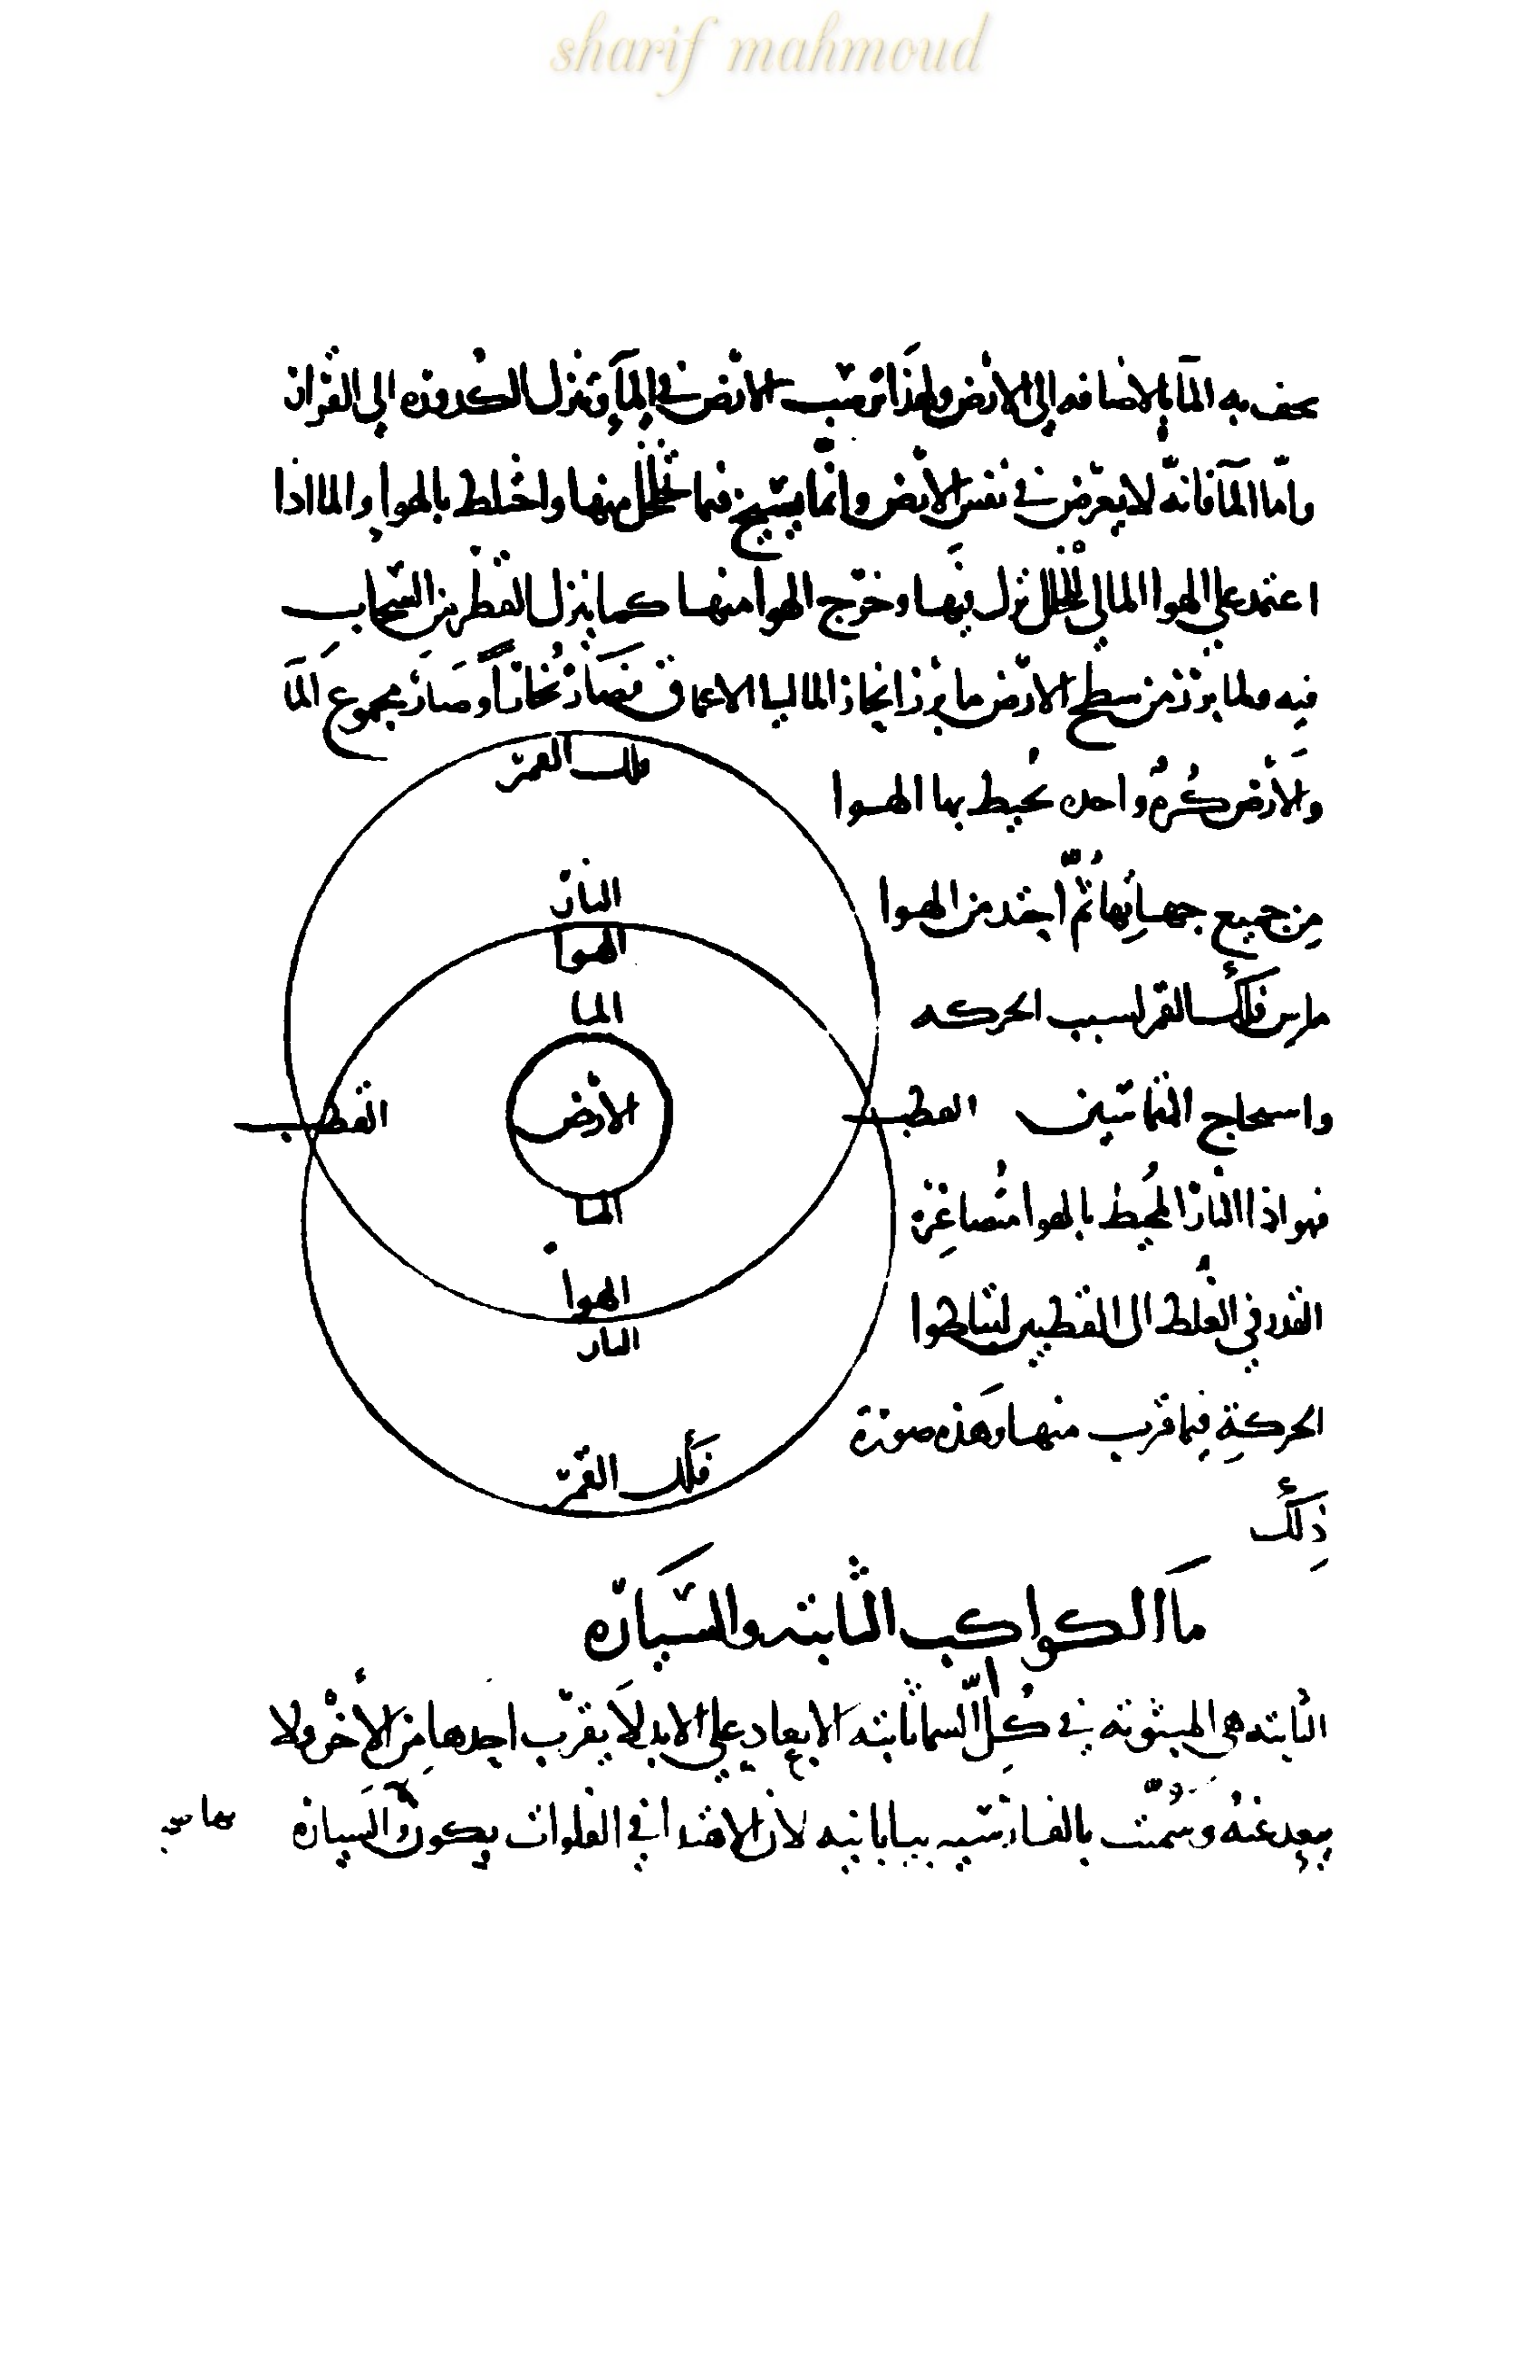 sharif mahmoud
يخف به الما بالاضافه الى الارض ولهذا ترسب الارض في الما وتنزل الكدوره الى القرار
واما الما فانه لا يعرض في نفس الارض وانما يسيخ فيما تخلخل منها واختلط بالهوا والما اذا
اعتمد على الهوا المالي للخلل نزل فيها وخرج الهوا منها كما ينزل القطر من السحاب
فيه ولما برز من سطح الارض ما برز انحاز الما الى الاعماق فصار بحارا وصار مجموع الما
والارض كرة واحده يحيط بها الهوا
من جميع جهاتها ثم احتدم من الهوا
ماس فلك القمر بسبب الحركه
واسحاج المتماسين
فهو اذا النار المحيط بالهوا متصاغرة
القدر في الغلظ الى القطبين لتباطوا
الحركة فيما قرب منهما وهذه صورة
ذلك
فلك القمر
النار
الهوا
الما
الارض
القطب
القطب
الما
الهوا
النار
فلك القمر
ما الكواكب الثابته والسياره
الثابته هي المبثوثه في كل السما ثابته الابعاد على الابد لا يقرب احدها من الاخر ولا
يبعد عنه وسميت بالفارسيه بيابانيه لان الاهتدا في الفلوات يكون بها والسياره